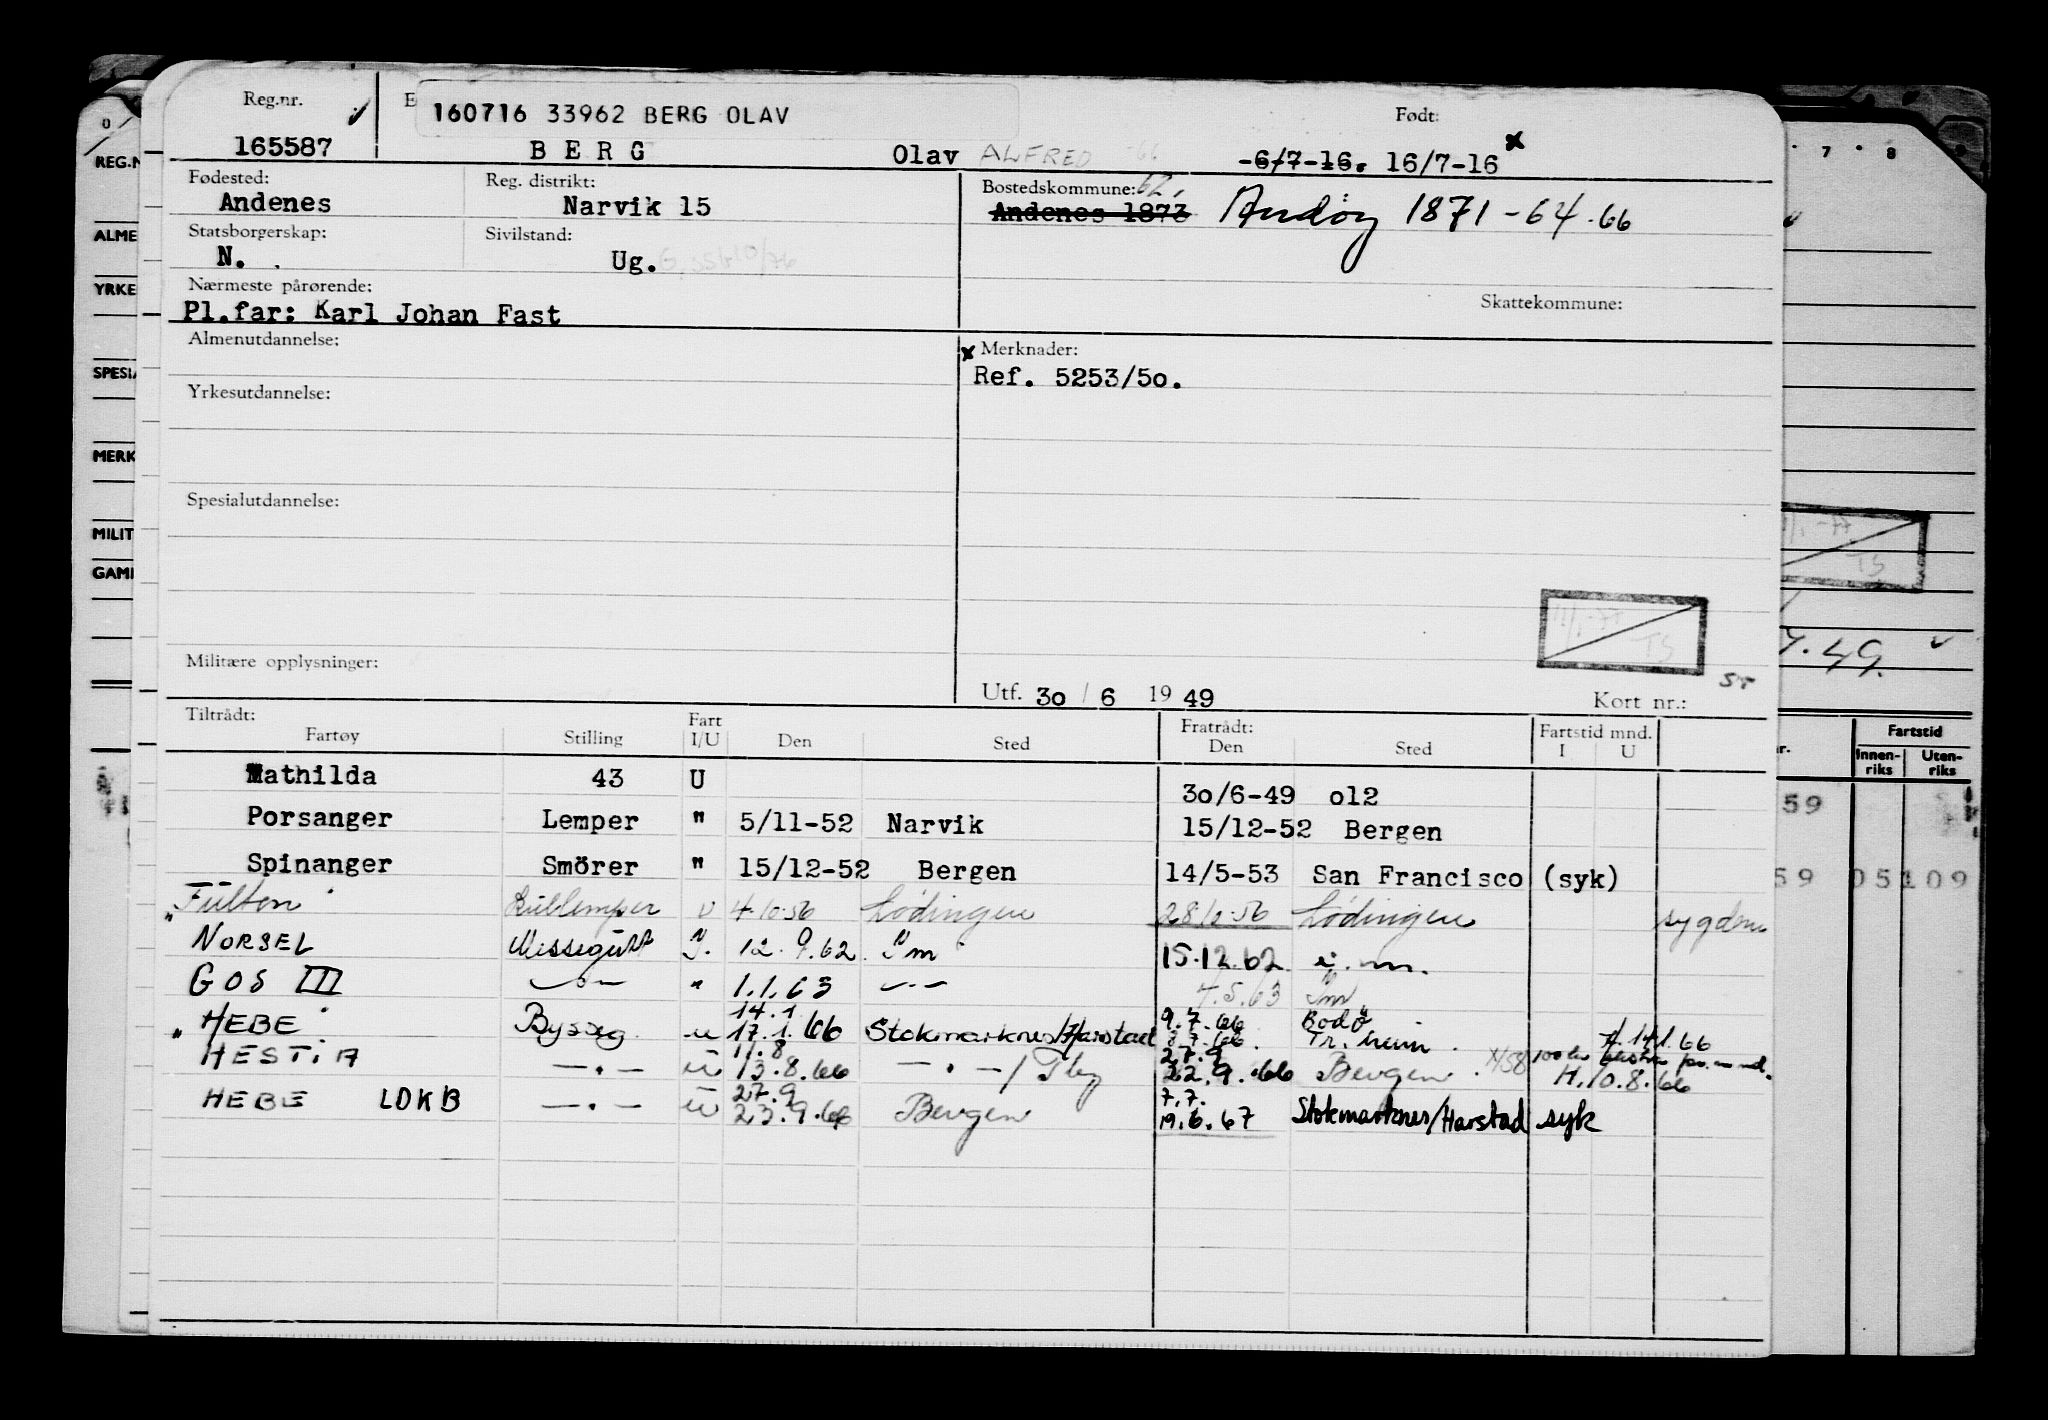 Reg.nr.
160716 33962 BERG OLAV
Født:
165587 B E R G Olav ALFRED -66 -6/7-16. 16/7-16 x
Fødested: Reg. distrikt: Bostedskommune: 62,
Andenes Narvik 15 Andenes 1873 Andøy 1871 - 64 . 66
Statsborgerskap: Sivilstand:
N. Ug.
Nærmeste pårørende: Skattekommune:
Pl.far: Karl Johan Fast
Almenutdannelse: x Merknader:
Ref. 5253/5o.
Yrkesutdannelse:
Spesialutdannelse:
11/1-77
TS
Militære opplysninger:
Utf. 3o / 6 19 49 Kort nr.:
Tiltrådt: Fart Fratrådt: Fartstid mnd.
Fartøy Stilling I/U Den Sted Den Sted I U
Mathilda 43 U 3o/6-49 ol2
Porsanger Lemper " 5/11-52 Narvik 15/12-52 Bergen
Spinanger Smörer " 15/12-52 Bergen 14/5-53 San Francisco (syk)
" Fulton Kullemper U 4.10.56 Lødingen 28/10.56 Lødingen sygdom
NORSEL Messegutt I. 12.9.62 I m 15.12.62 i.m.
GOS III —"— " 1.1.63 —"— 4.5.63 Im
14.1 9.7.66 Bodø
" HEBE Byssg. u 17.1.66 Stokmarknes/Harstad 8.7.66 Tr.heim H. 14.1.66
11.8 27.9
HESTIA —"— u 13.8.66 —"—/ 22.9.66 Bergen H.10.8.66
27.9 7.7.
HEBE LDKB —"— u 23.9.66 Bergen 19.6.67 Stokmarknes/Harstad syk
REG.N
ALME
YRKE
SPESIA
MERK
MILIT
GAMI
7 8
11/1-77
TS
7.49.
Fartstid
Innen-riks Uten-riks
59
59 05 109